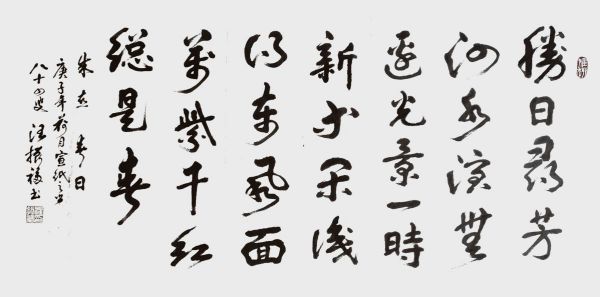 勝日尋芳
泗水濱無
邊光景一時
新等閒識
得東風面
萬紫千紅
總是春
朱熹 春日
庚子年荷月宣紙之乡
八十四叟 汪 书